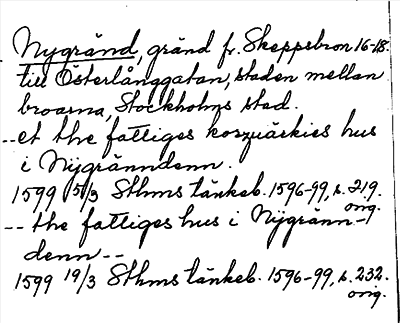 Nygränd, gränd fr. Skeppsbron 16-18.
till Österlånggatan, staden mellan
broarna, Stockholms stad.
--et the fattiges korzuäckies hus
i Nÿgränndenn.
1599 15/3 Sthms tänkeb. 1596-99, s. 219.
orig.
-- the fattiges hus i Nÿgränn-
denn --
1599 19/3 Sthms tänkeb. 1596-99, s. 232.
orig.